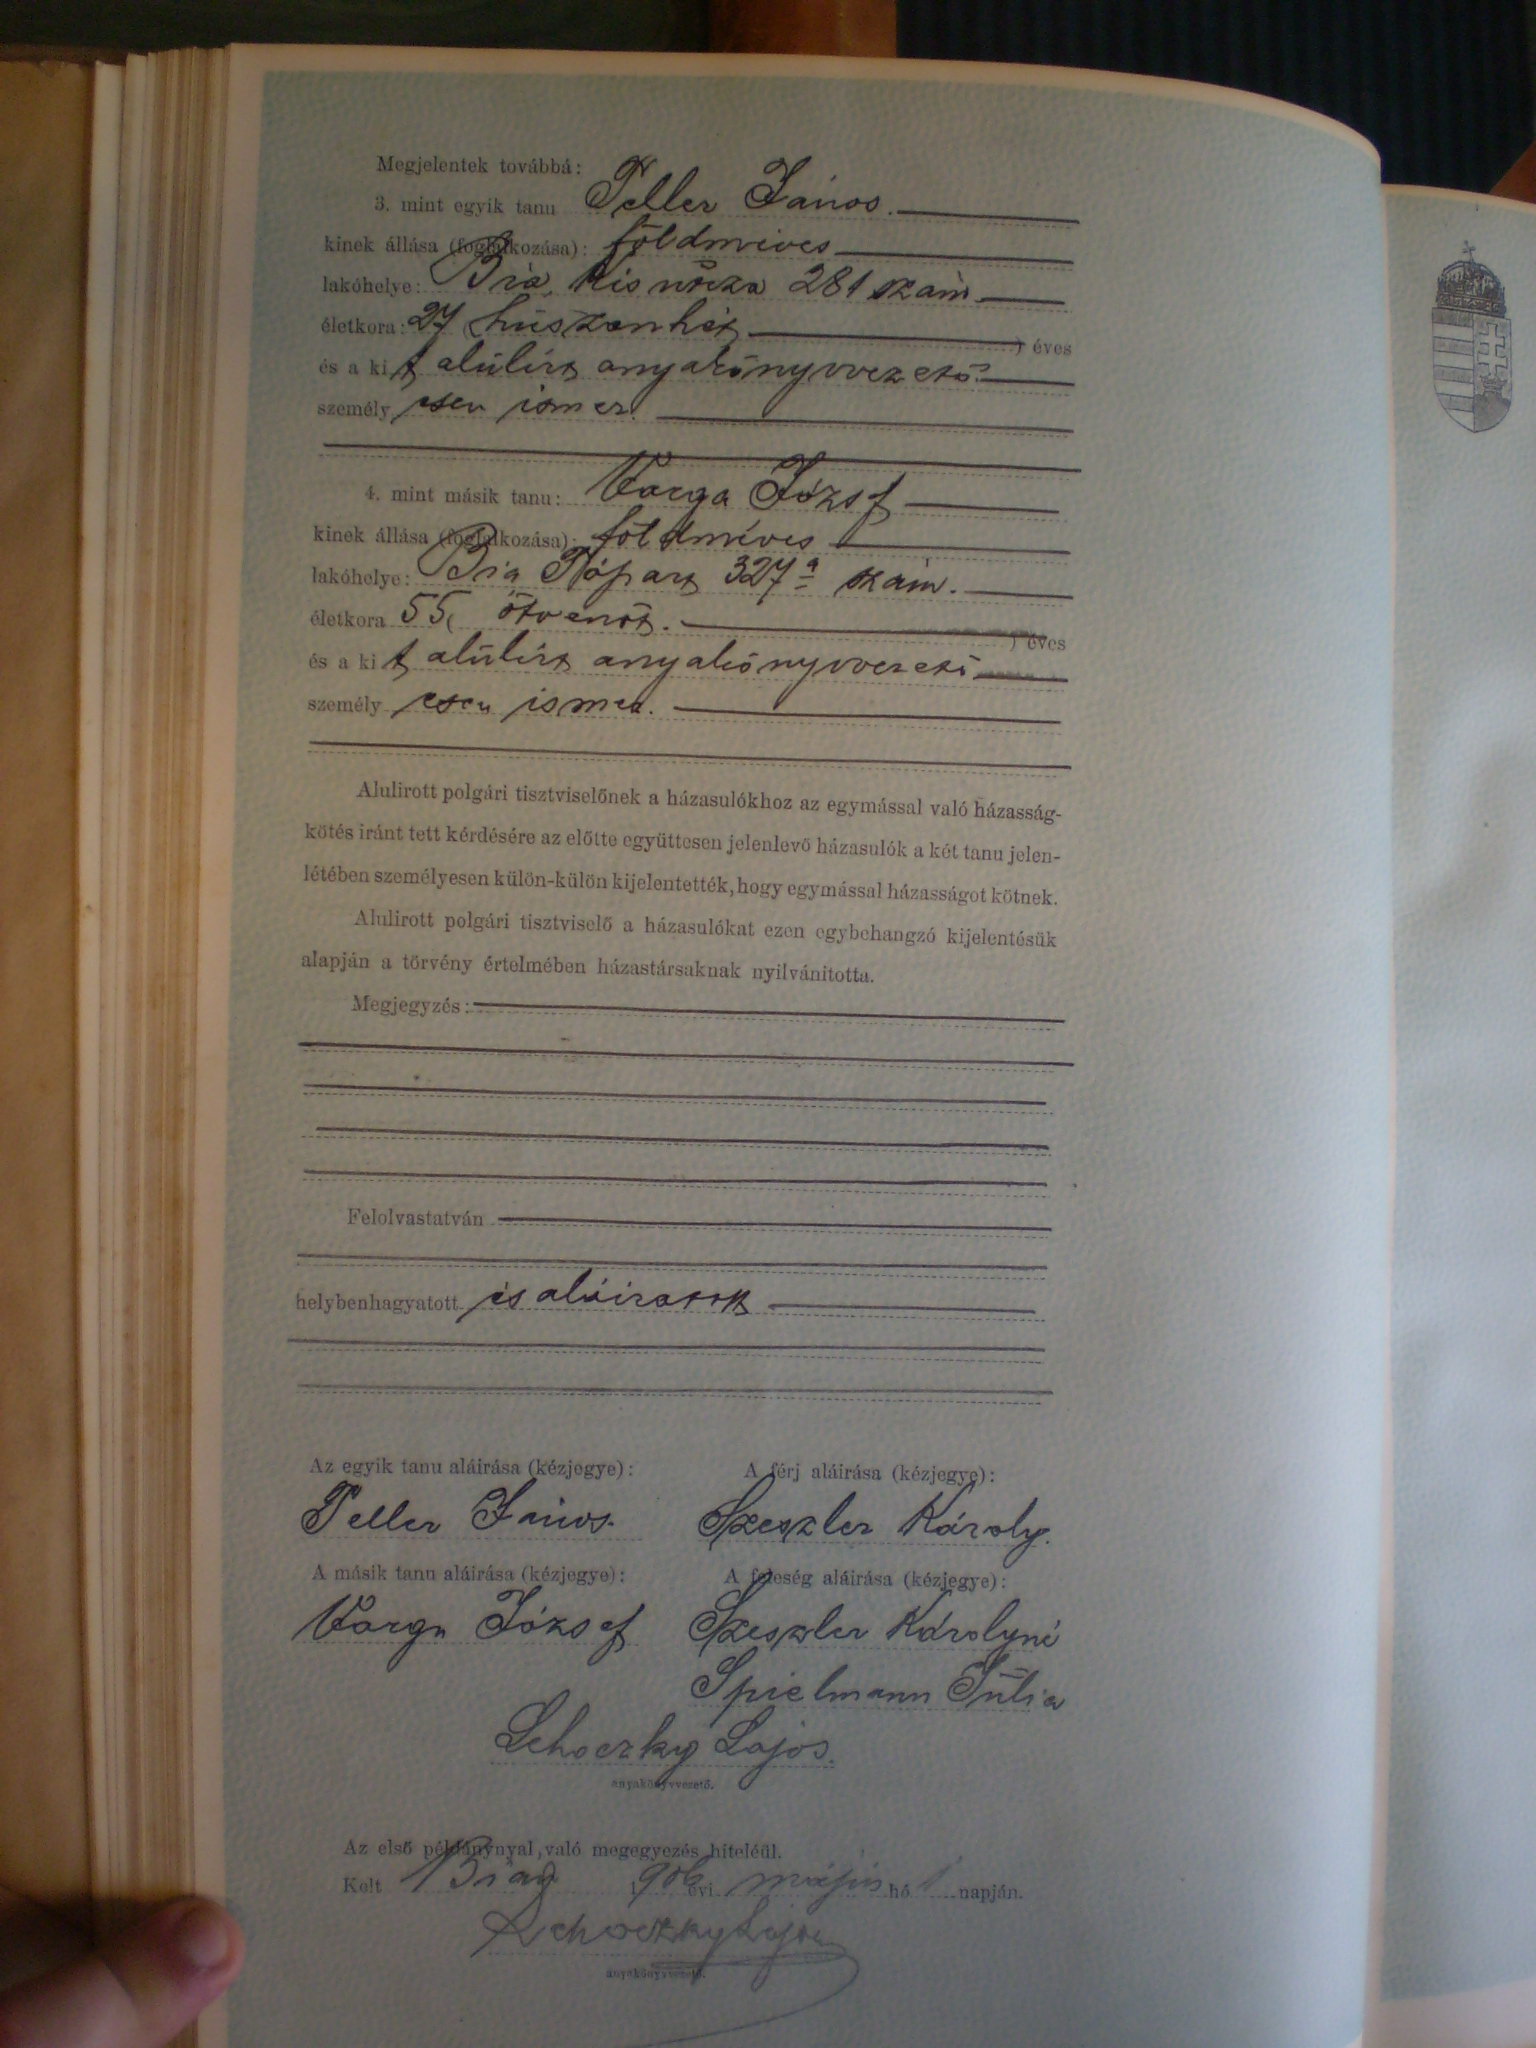 Megjelentek továbbá:
3. mint egyik tanu Peller János.
kinek állása (foglalkozása): földmíves
lakóhelye: Bia, Kis 281 szám
életkora: 27 (húszonhét ) éves
és a kit alúlírt anyakönyvvezető
személyesen ismer.
4. mint másik tanu: Varga József
kinek állása (foglalkozása): földmíves
lakóhelye: Bia Tópart 327a szám.
életkora 55( ötvenöt. ) éves
és a kit alúlírt anyakönyvvezető
személyesen ismer.
Alulirott polgári tisztviselőnek a házasulókhoz az egymással való házasság-
kötés iránt tett kérdésére az előtte együttesen jelenlevő házasulók a két tanu jelen-
létében személyesen külön-külön kijelentették, hogy egymással házasságot kötnek.
Alulirott polgári tisztviselő a házasulókat ezen egybehangzó kijelentésük
alapján a törvény értelmében házastársaknak nyilvánitotta.
Megjegyzés:
Felolvastatván
helybenhagyatott és aláiratott
Az egyik tanu aláirása (kézjegye): A férj aláirása (kézjegye):
Peller János. Szeszler Károly.
A másik tanu aláirása (kézjegye): A feleség aláirása (kézjegye):
Varga József Szeszler Károlyné
Spielmann Júlia
Schoczky Lajos.
anyakönyvvezető.
Az első példánynyal való megegyezés hiteléül.
Kelt Bian 1906 évi május hó 1 napján.
Schoczky Lajos
anyakönyvvezető.